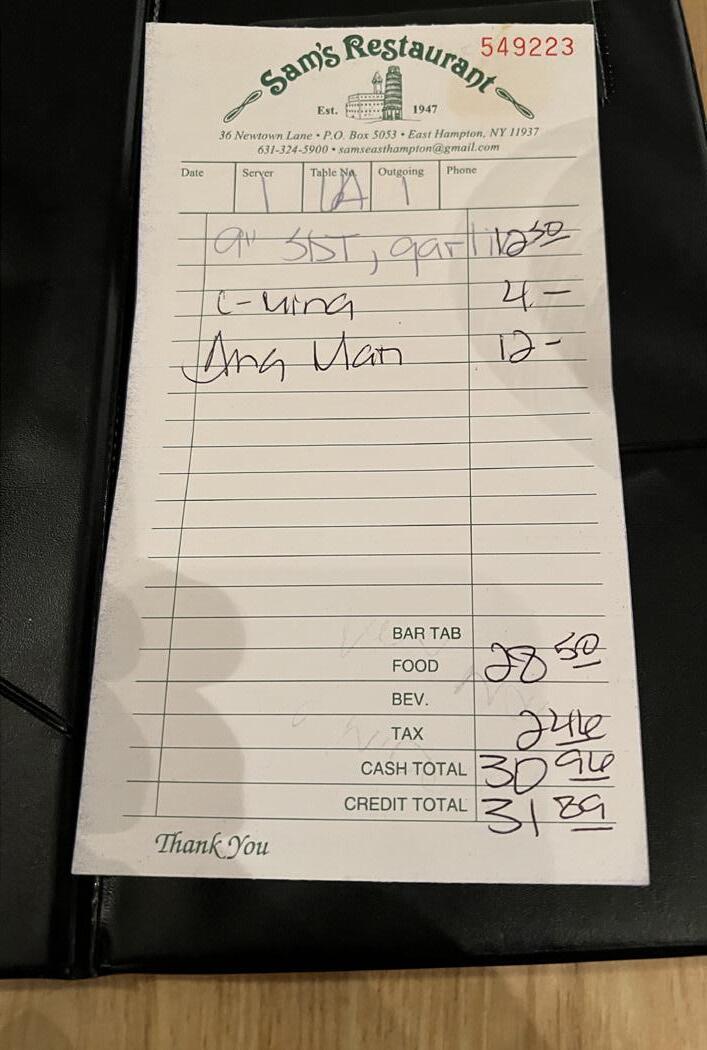 Sam's Restaurant
549223
Est. 1947
36 Newtown Lane • P.O. Box 5053 • East Hampton, NY 11937
631-324-5900 • samseasthampton@gmail.com
Date Server Table No. Outgoing Phone
1 1
9" garlic 12 50
4 -
12 -
BAR TAB
FOOD 28 50
BEV.
TAX 2 46
CASH TOTAL 30 96
CREDIT TOTAL 31 89
Thank You